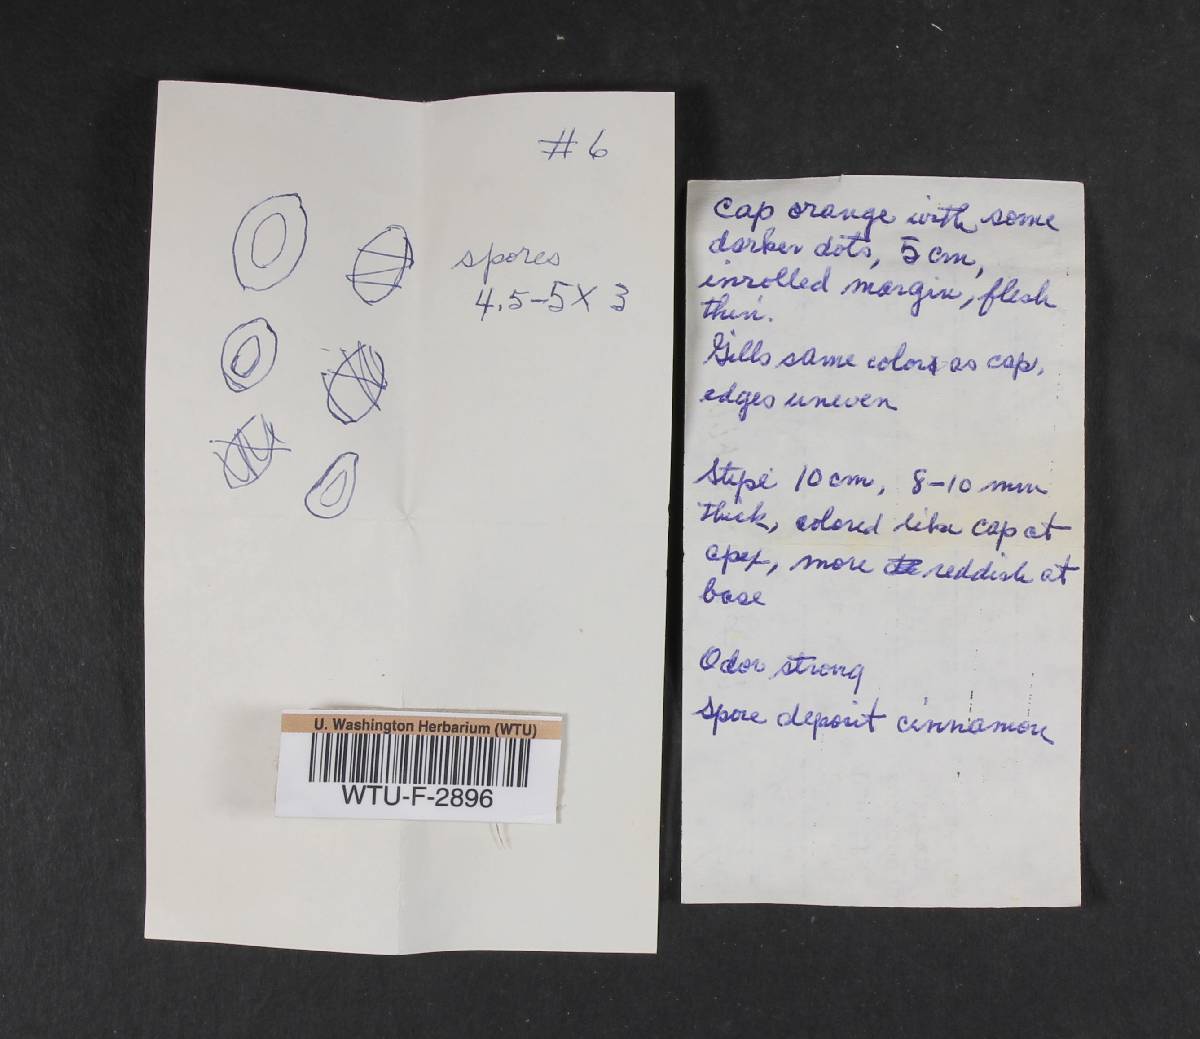 #6
spores
4.5-5 X 3
U. Washington Herbarium (WTU)
WTU-F-2896
Cap orange with some
darker dots, 5 cm,
inrolled margin, flesh
thin.
Gills same colors as cap,
edges uneven
Stipe 10 cm, 8-10 mm
thick, colored like cap at
apex, more reddish at
base
Odor strong
Spore deposit cinnamon